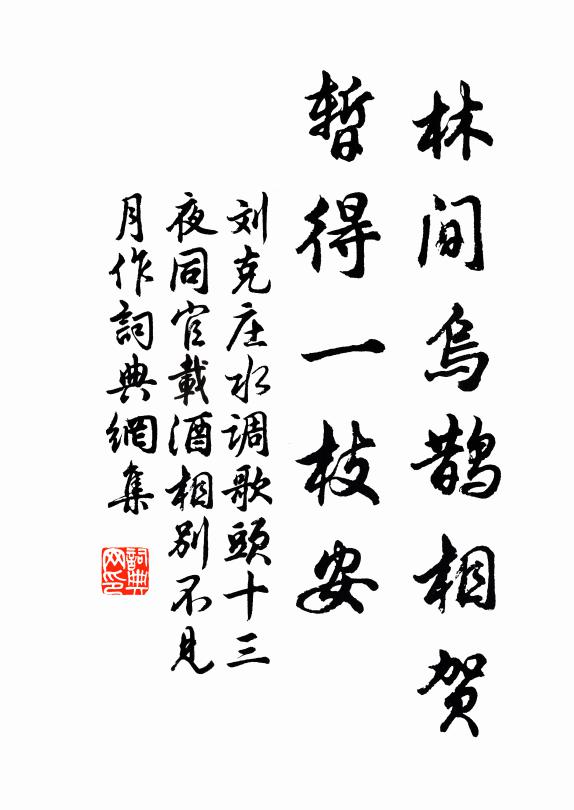 林间乌鹊相贺
暂得一枝安
刘克庄水调歌頭十三
夜同官載酒相别不见
月作詞典網集
詞典网印